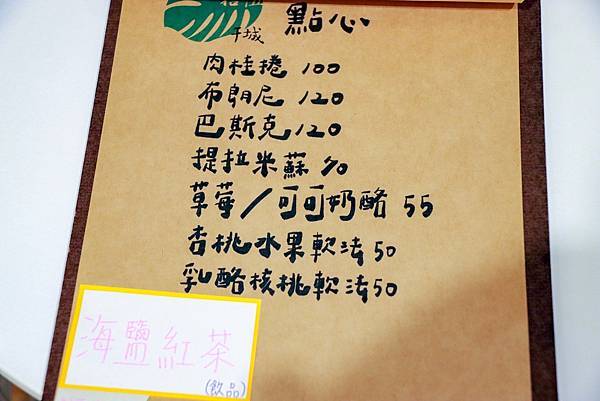 千城
點心
肉桂捲 100
布朗尼 120
巴斯克 120
提拉米蘇 90
草莓/可可奶酪 55
杏桃水果軟法 50
乳酪核桃軟法 50
海鹽紅茶
(飲品)